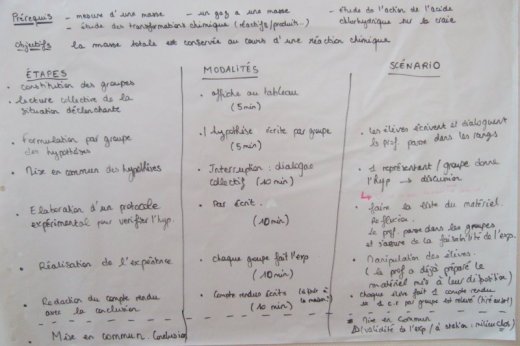 Prérequis - mesure d'une masse - un gaz a une masse - étude de l'action de l'acide
- étude des transformations chimique (réactifs/produits...) chlorhydrique sur la craie
Objectifs la masse totale est conservée au cours d'une réaction chimique
ÉTAPES
• constitution des groupes
• lecture collective de la
situation déclenchante
• Formulation par groupe
des hypothèses
• Mise en commun des hypothèses
• Elaboration d'un protocole
expérimental pour vérifier l'hyp.
• Réalisation de l'expérience
• Redaction du compte rendu
avec la conclusion
• Mise en commun (conclusion)
MODALITÉS
• affiche au tableau
(5 min)
• 1 hypothèse écrite par groupe
(5 min)
Interruption : dialogue
collectif (10 min)
• Par écrit.
(10 min)
• chaque groupe fait l'exp
(10 min)
• Compte rendus écrits (à la maison)
(10 min)
SCÉNARIO
• les élèves écrivent et dialoguent
le prof passe dans les rangs
• 1 représentent / groupe donne
l'hyp → discussion
• faire la liste du matériel.
Réflexion.
le prof passe dans les groupes
et s'assure de la faisabilité de l'exp.
• Manipulation des élèves.
(le prof a déjà préparé le
matériel mis à leur disposition)
• chaque élève fait 1 compte rendu
1 c.r par groupe est relevé
• Mise en Commun
(validité de l'exp / milieu clos)